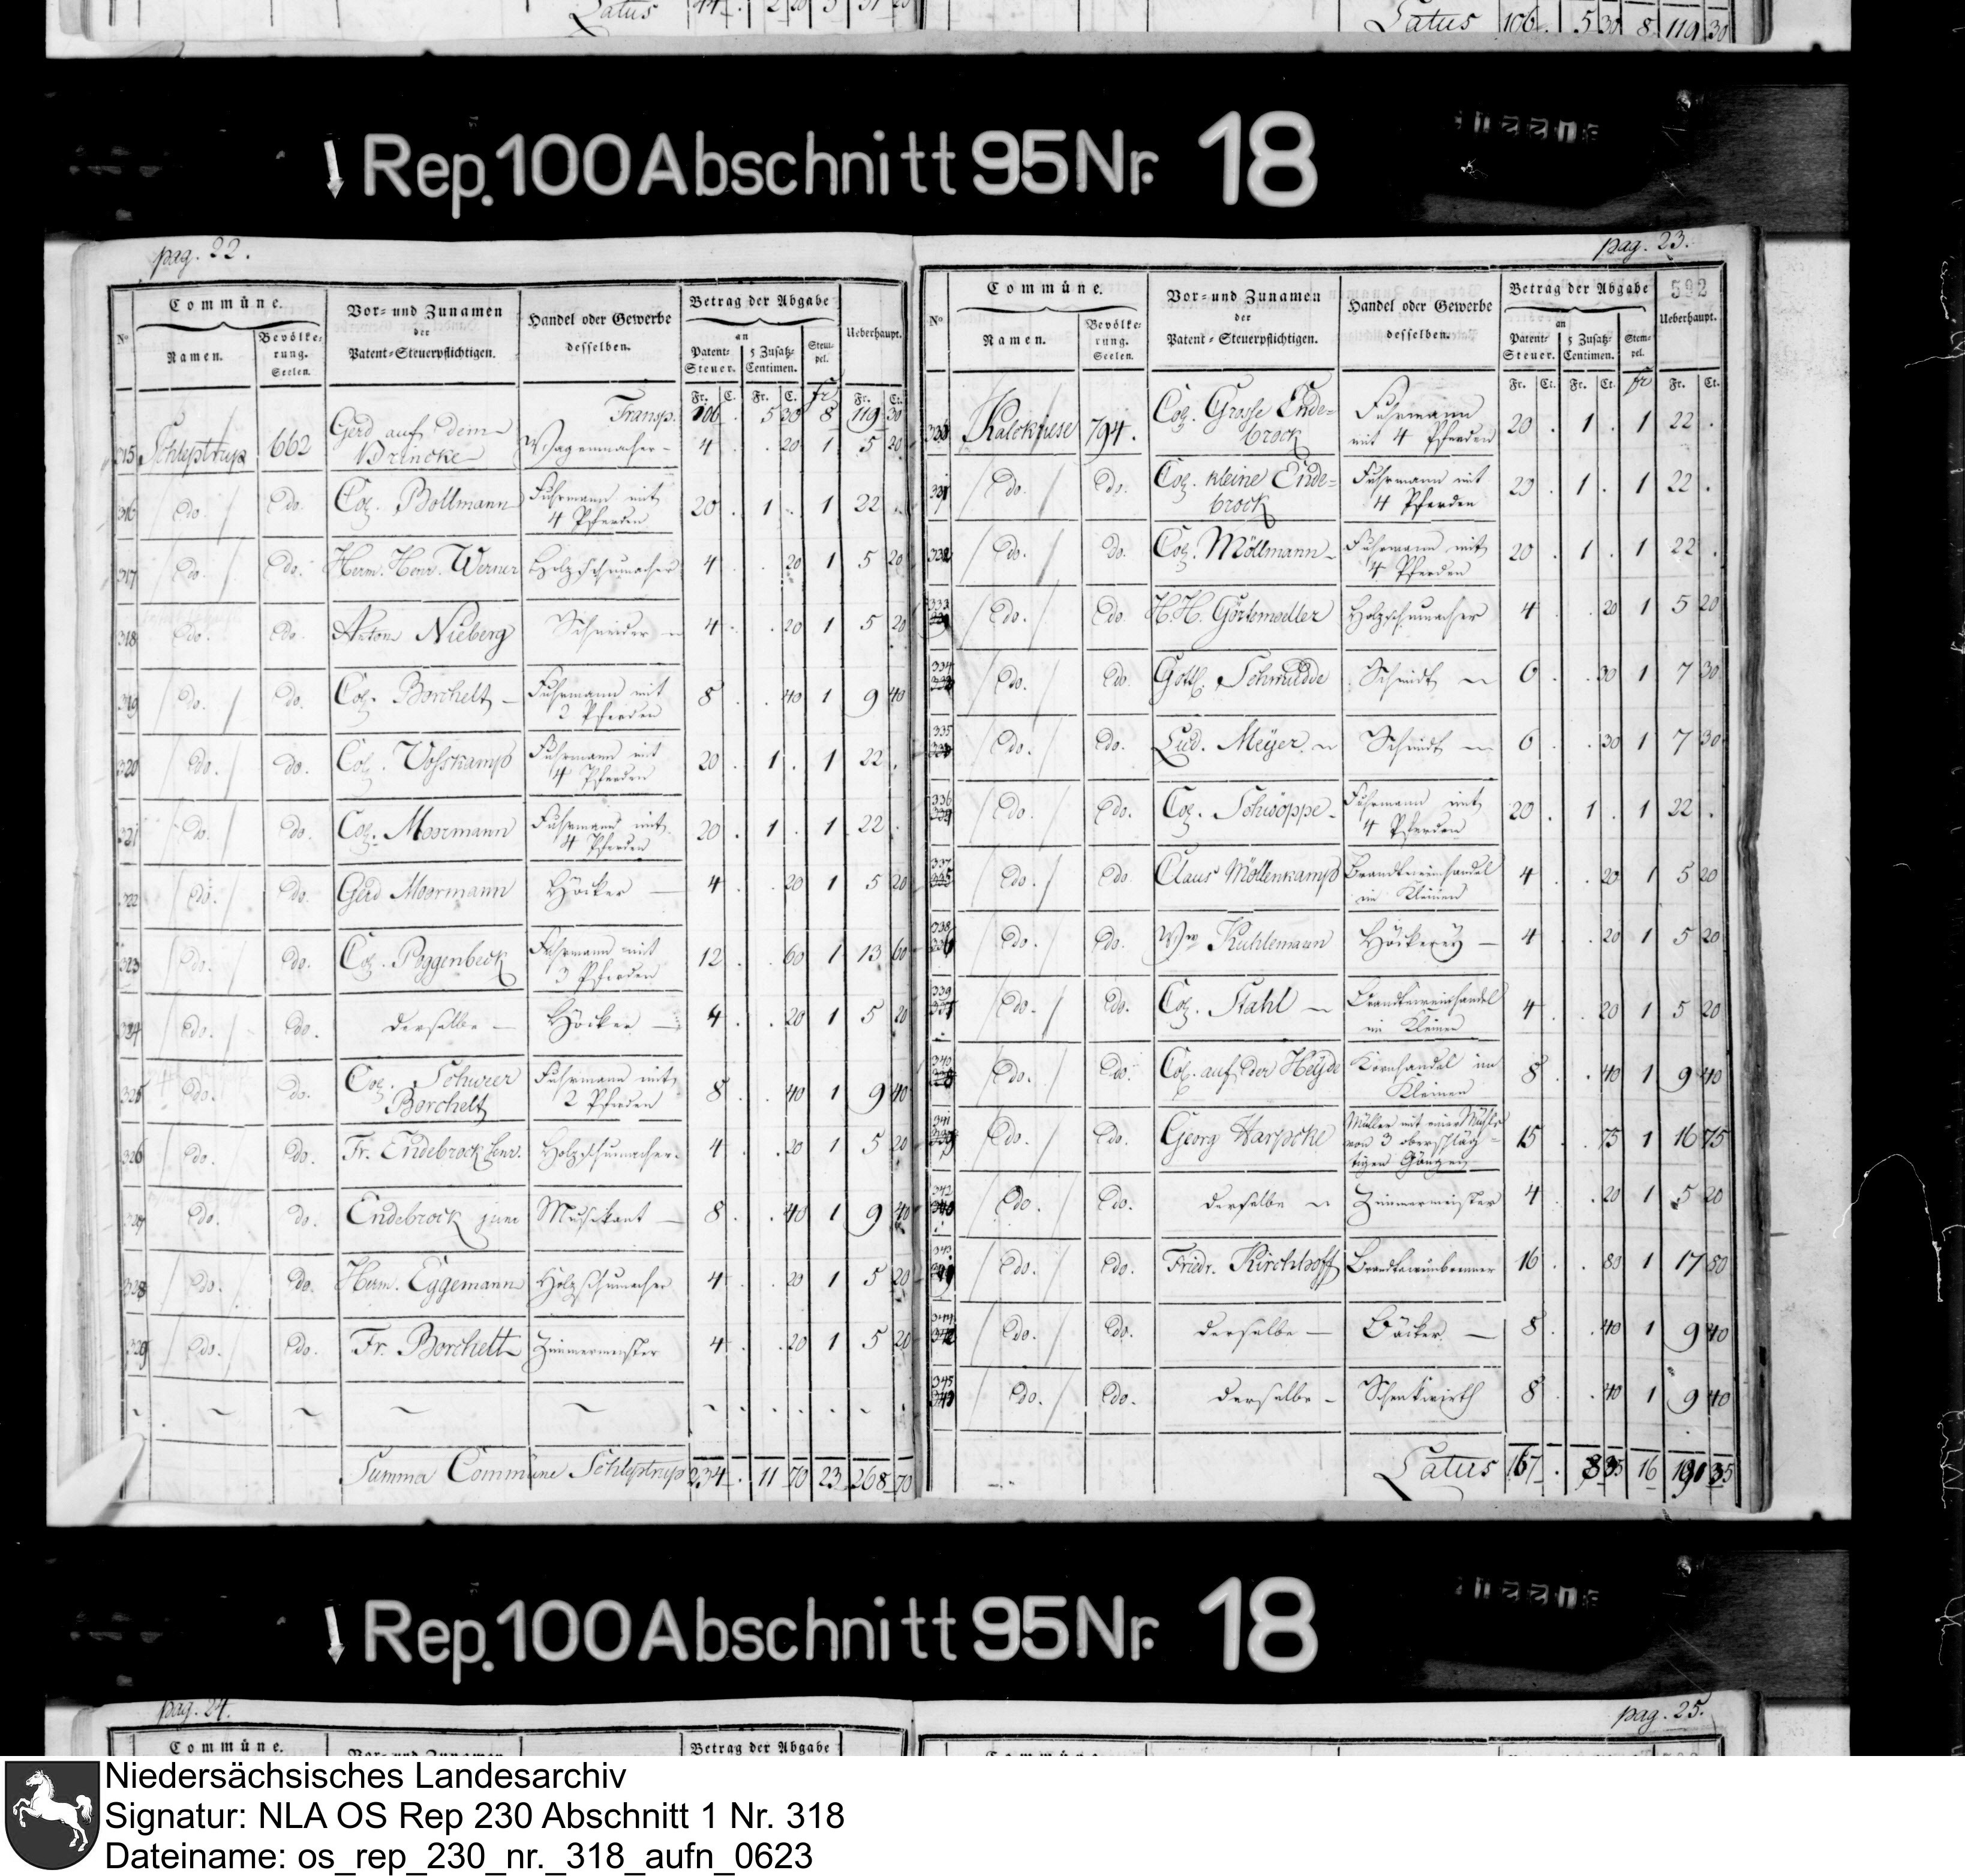 Latus 44 . 2 20 3 51 20
Latus 106 . 5 30 8 119 30
Rep. 100 Abschnitt 95 Nr. 18
pag. 22.
Commüne.
Vor- und Zunamen
der
Patent-Steuerpflichtigen.
Handel oder Gewerbe
desselben.
Betrag der Abgabe
an
Ueberhaupt.
No
Namen.
Bevölke-
rung.
Seelen.
Patent-
Steuer.
5 Zusatz-
Centimen.
Stem-
pel.
Fr. C. Fr. C. fr Fr. Ct.
Transp. 106 . 5 30 8 119 30
315 Schleptrup 662 Gerd auf dem Brincke Wagenmacher 4 . . 20 1 5 20
316 do. do. Col. Bollmann Fuhrmann mit 4 Pferden 20 . 1 . 1 22 .
317 do. do. Herm. Henr. Werner Holzschumacher 4 . . 20 1 5 20
318 do. do. Anton Nieberg Schneider 4 . . 20 1 5 20
319 do. do. Col. Borchelt Fuhrmann mit 2 Pferden 8 . . 40 1 9 40
320 do. do. Col. Vosskamp Fuhrmann mit 4 Pferden 20 . 1 . 1 22 .
321 do. do. Col. Moormann Fuhrmann mit 4 Pferden 20 . 1 . 1 22 .
322 do. do. Gerd Moormann Höcker 4 . . 20 1 5 20
323 do. do. Col. Poggenbeck Fuhrmann mit 3 Pferden 12 . . 60 1 13 60
324 do. do. derselbe Höcker 4 . . 20 1 5 20
325 do. do. Col. Schwier Borchelt Fuhrmann mit 2 Pferden 8 . . 40 1 9 40
326 do. do. Fr. Endebrock senr. Holzschumacher 4 . . 20 1 5 20
327 do. do. Endebrock jun Musikant 8 . . 40 1 9 40
328 do. do. Herm. Eggemann Holzschumacher 4 . . 20 1 5 20
329 do. do. Fr. Borchelt Zimmermeister 4 . . 20 1 5 20
Summa Commüne Schleptrup 234 . 11 70 23 268 70
pag. 23.
592
Commüne.
Vor- und Zunamen
der
Patent-Steuerpflichtigen.
Handel oder Gewerbe
desselben.
Betrag der Abgabe
an
Ueberhaupt.
No
Namen.
Bevölke-
rung.
Seelen.
Patent-
Steuer.
5 Zusatz-
Centimen.
Stem-
pel.
Fr. Ct. Fr. Ct. fr Fr. Ct.
330 Kalckriese 794. Col. Grosse Ende-
brock Fuhrmann mit 4 Pferden 20 . 1 . 1 22 .
331 do. do. Col. kleine Ende-
brock Fuhrmann mit 4 Pferden 20 . 1 . 1 22 .
332 do. do. Col. Möllmann Fuhrmann mit 4 Pferden 20 . 1 . 1 22 .
333 do. do. H. H. Görtemoeller Holzschumacher 4 . . 20 1 5 20
334 do. do. Gottl. Schmudde Schmidt 6 . . 30 1 7 30
335 do. do. Lud. Meÿer Schmidt 6 . . 30 1 7 30
336 do. do. Col. Schwöppe Fuhrmann mit 4 Pferden 20 . 1 . 1 22 .
337 do. do. Claus Möllenkamp Brandteweinhandel im Kleinen 4 . . 20 1 5 20
338 do. do. Ww Kuhlemann Höckereÿ 4 . . 20 1 5 20
339 do. do. Col. Stahl Brandteweinhandel im Kleinen 4 . . 20 1 5 20
340 do. do. Col. auf der Heÿde Kornhandel im Kleinen 8 . . 40 1 9 40
341 do. do. Georg Harpcke Müller mit einer Mühle
von 3 oberschläg-
tigen Gängen 15 . . 75 1 16 75
342 do. do. derselbe Zimmermeister 4 . . 20 1 5 20
343 do. do. Friedr. Kirchhoff Brandteweinbrenner 16 . . 80 1 17 80
344 do. do. derselbe Bäcker 8 . . 40 1 9 40
345 do. do. derselbe Schenkwirth 8 . . 40 1 9 40
Latus 167 . 8 35 16 191 35
Rep. 100 Abschnitt 95 Nr. 18
pag. 24.
pag. 25.
Commüne.
Vor- und Zunamen
Betrag der Abgabe
Niedersächsisches Landesarchiv
Signatur: NLA OS Rep 230 Abschnitt 1 Nr. 318
Dateiname: os_rep_230_nr._318_aufn_0623